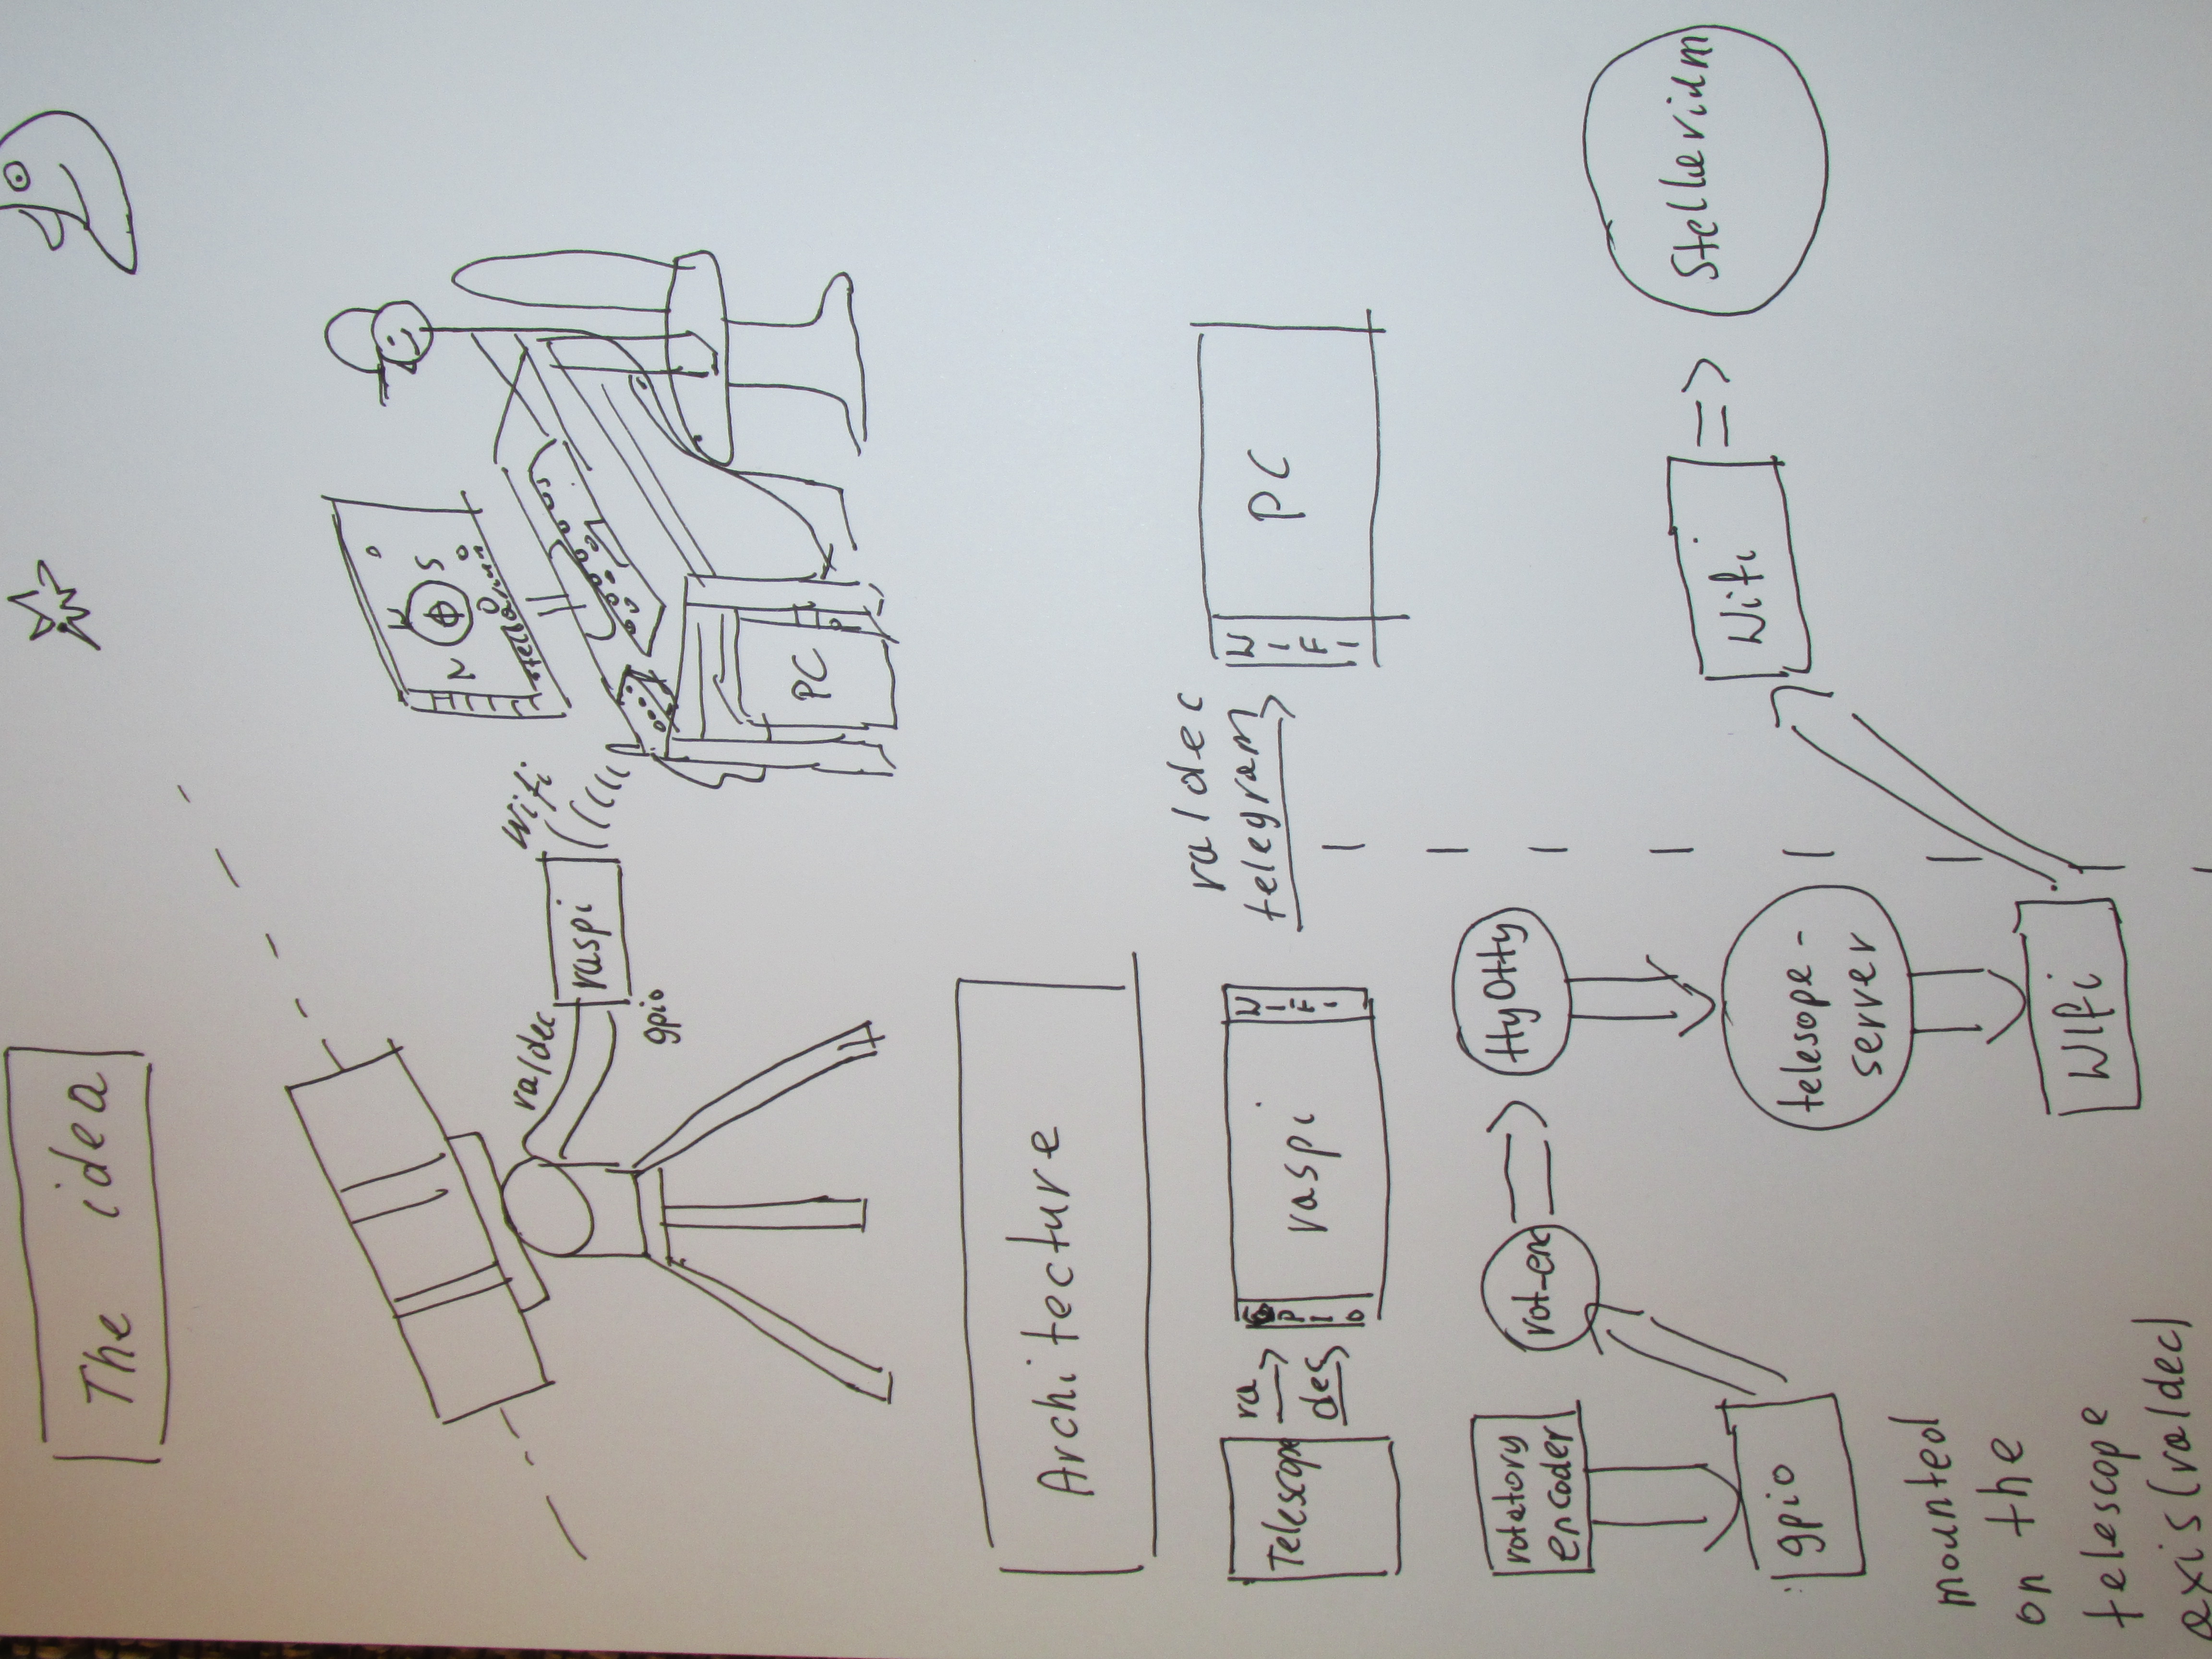 The idea
ra/dec
raspi
gpio
Wifi
W
N
S
O
stellarium
PC
Architecture
Telescope
ra
dec
GPIO
raspi
WIFI
ra/dec
telegram
WIFI
PC
rotatory
encoder
rot-enc
tty0tty
gpio
telesope-
server
Wifi
Stellarium
WIfi
mounted
on the
telescope
axis(ra/dec)